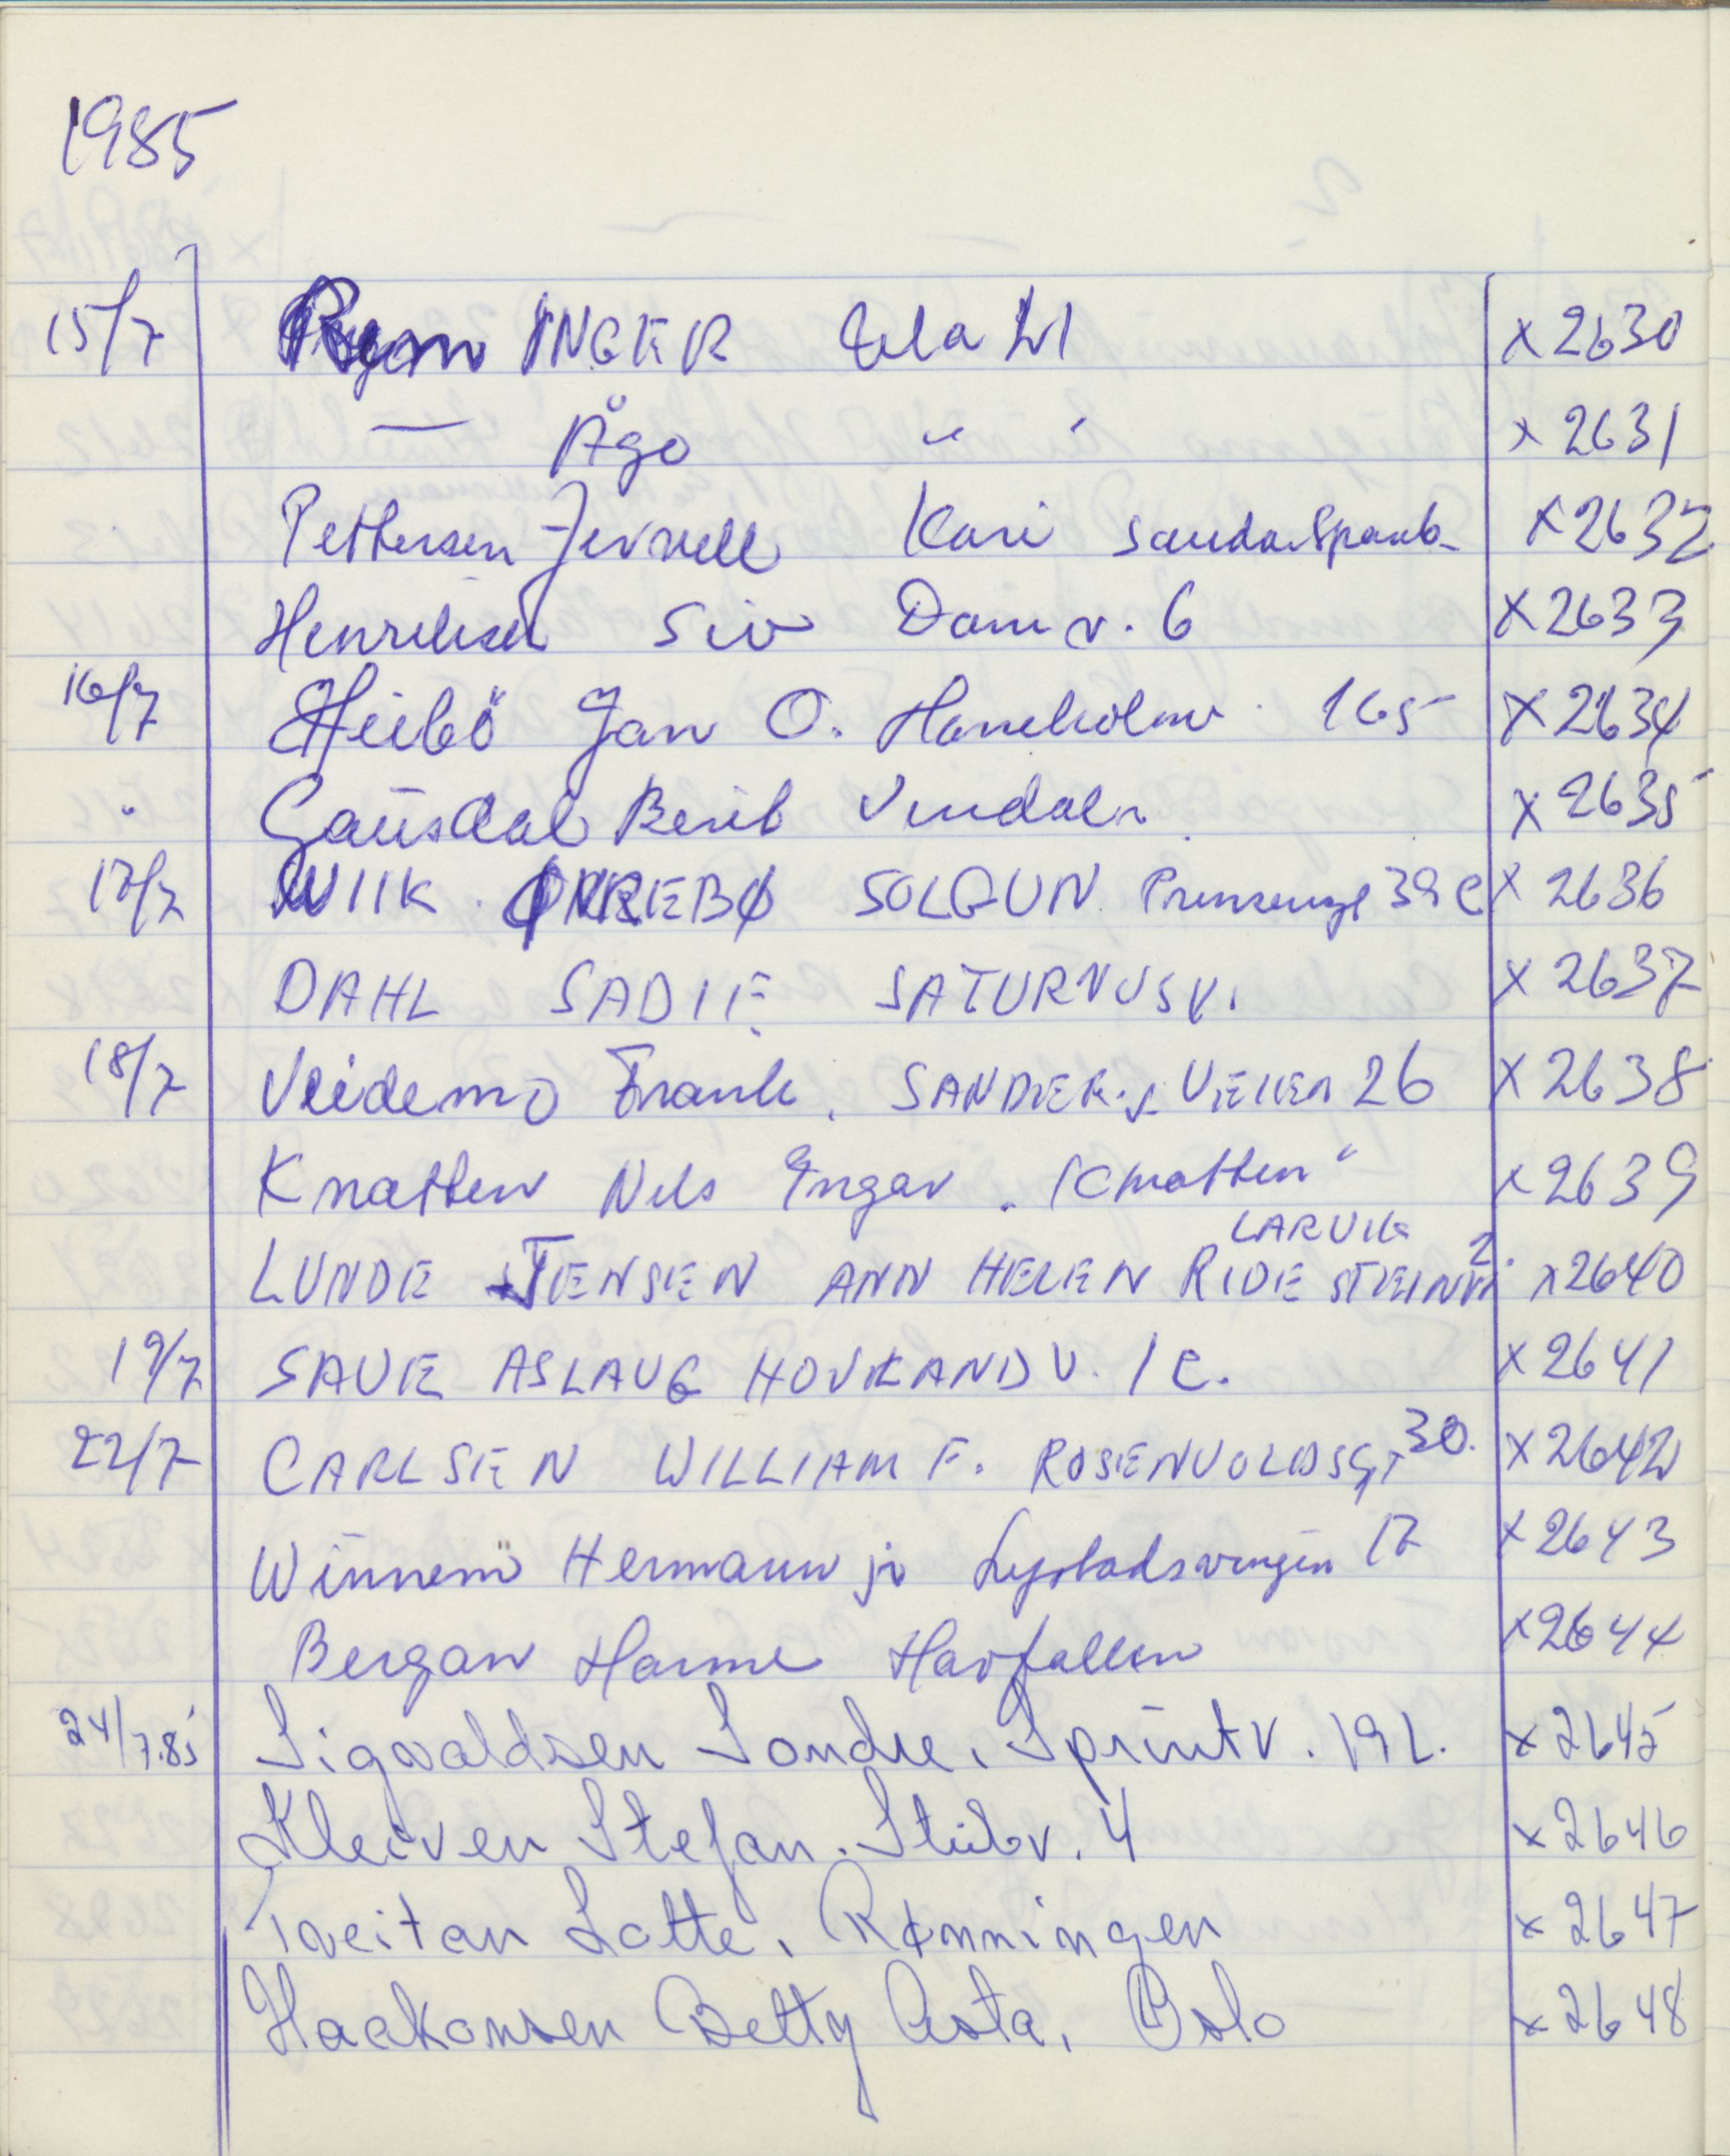 1985
15/7 INGER X 2630
— Åge " " X 2631
Pettersen Jervell Kari X 2632
Henriksen Siv Damv. 6 X 2633
16/7 Heibö Jan O. 165 X 2634
" Gausdal Berit X 2635
17/7 WIIK SOLGUN 39 C X 2636
DAHL SADIE SATURNUSV. X 2637
18/7 Veidemo Frank. 26 X 2638
Knatten Nils Ingar. "Knatten" X 2639
LARVIK
LUNDE JENSEN ANN HELEN 2 X 2640
19/7 SAUE ASLAUG HOVKANDV. 1 C. X 2641
22/7 CARLSEN WILLIAM F. ROSENVOLDSGT 30. X 2642
Hermann jr 17 X 2643
Bergan Hanne X 2644
24/7.85 Sigvaldsen Sondre. Sprintv. 19 L. X 2645
Kleiven Stefan. Stubv. 4 X 2646
Tveitan Lotte. Rønningen X 2647
Haakonsen Betty Asta. Oslo X 2648